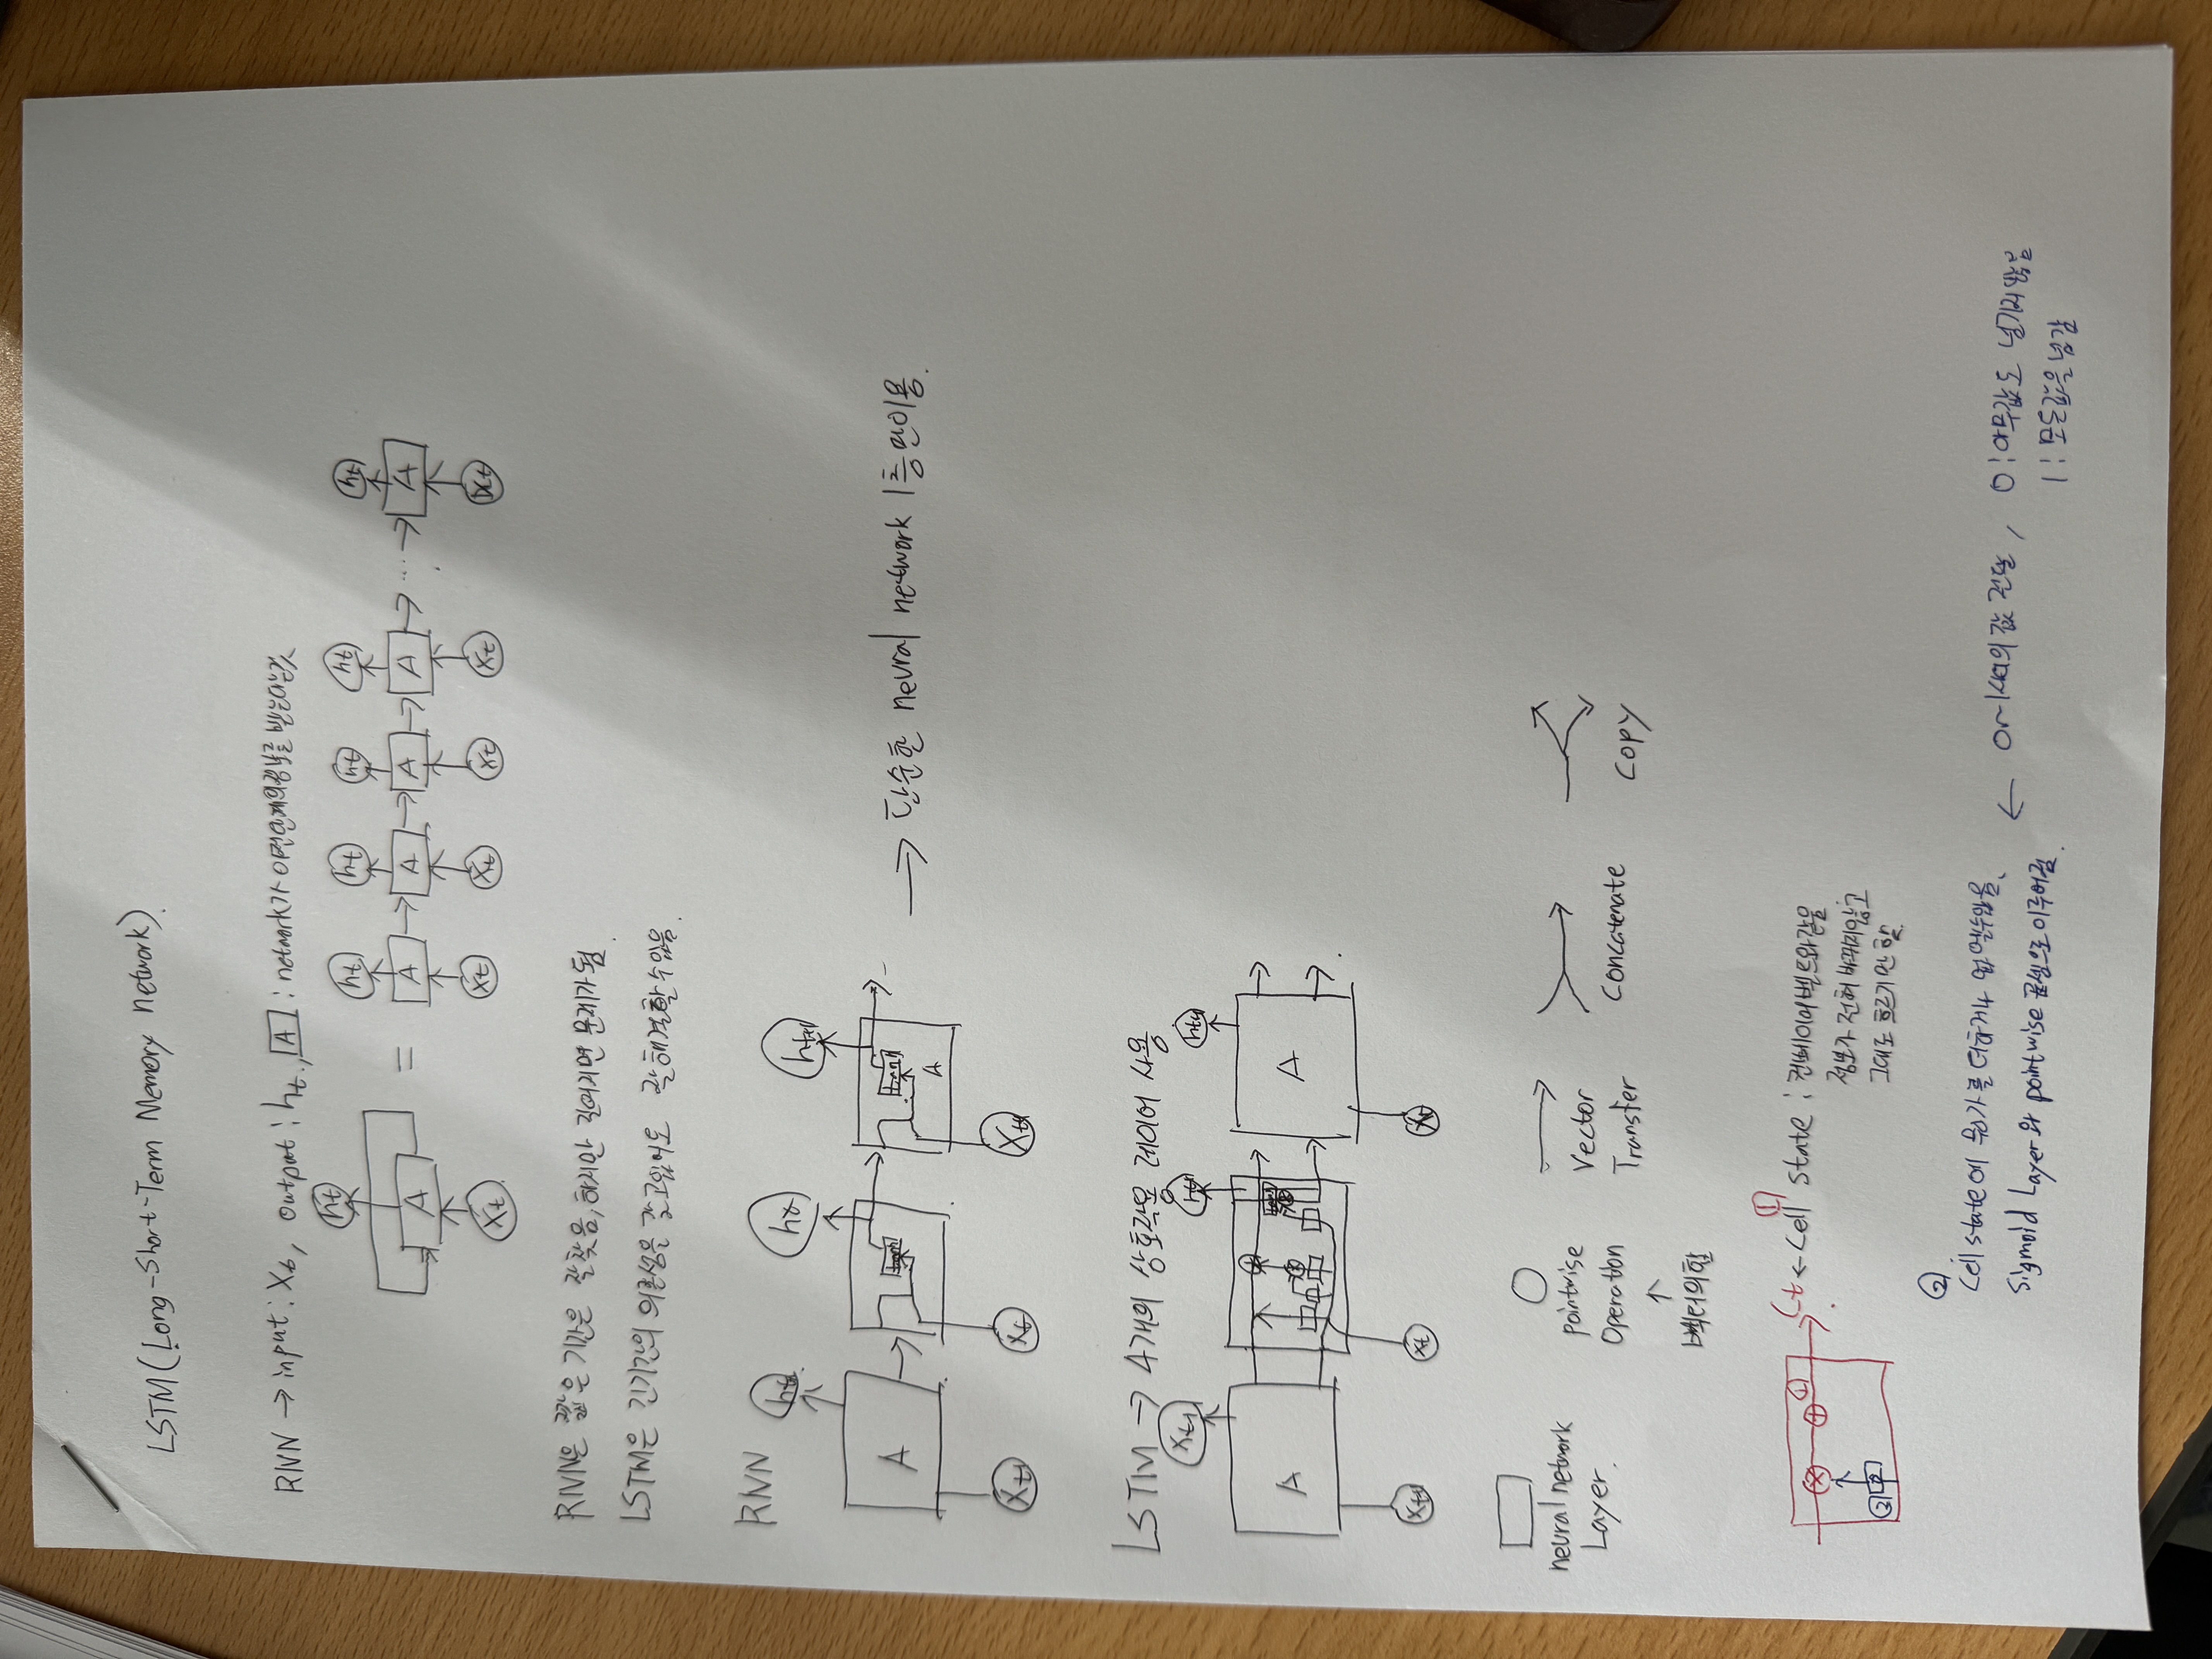 LSTM(Long-Short-Term Memory network)
RNN → input: Xt, output: ht, A : network가 이전단계의정보를 받는다는것
ht
ht ht ht ht ht
A = A → A → A → A → ... → A
Xt
Xt Xt Xt Xt Xt
RNN은 짧은 기간은 잘찾음, 하지만 길어지면 문제가됨
LSTM은 긴기간의 의존성을 갖고있어도 잘해결할수있음.
RNN
ht ht+1
A tanh tanh
A
→ 단순한 neural network 1층만이용.
Xt-1 Xt Xt+1
LSTM → 4개의 상호작용 레이어 사용
Xt-1 ht+1
A + tanh A
x x
Xt Xt
neural network
Layer.
pointwise
Operation
Vector
Transfer
Concatenate
Copy
↑
벡터의합
①
x + ① Ct ← Cell state : 컨베이어벨트와같음
정보가 전혀 바뀌지않고
③ 그대로 흐르기만 함.
②
Cell state에 뭔가를 더하거나 없앨수있음.
Sigmoid Layer와 pointwise 곱셈으로이루어짐.
← 0~1사이의 값 전달, 0:아무값도 넘기지 않음
1:모든값을 넘김